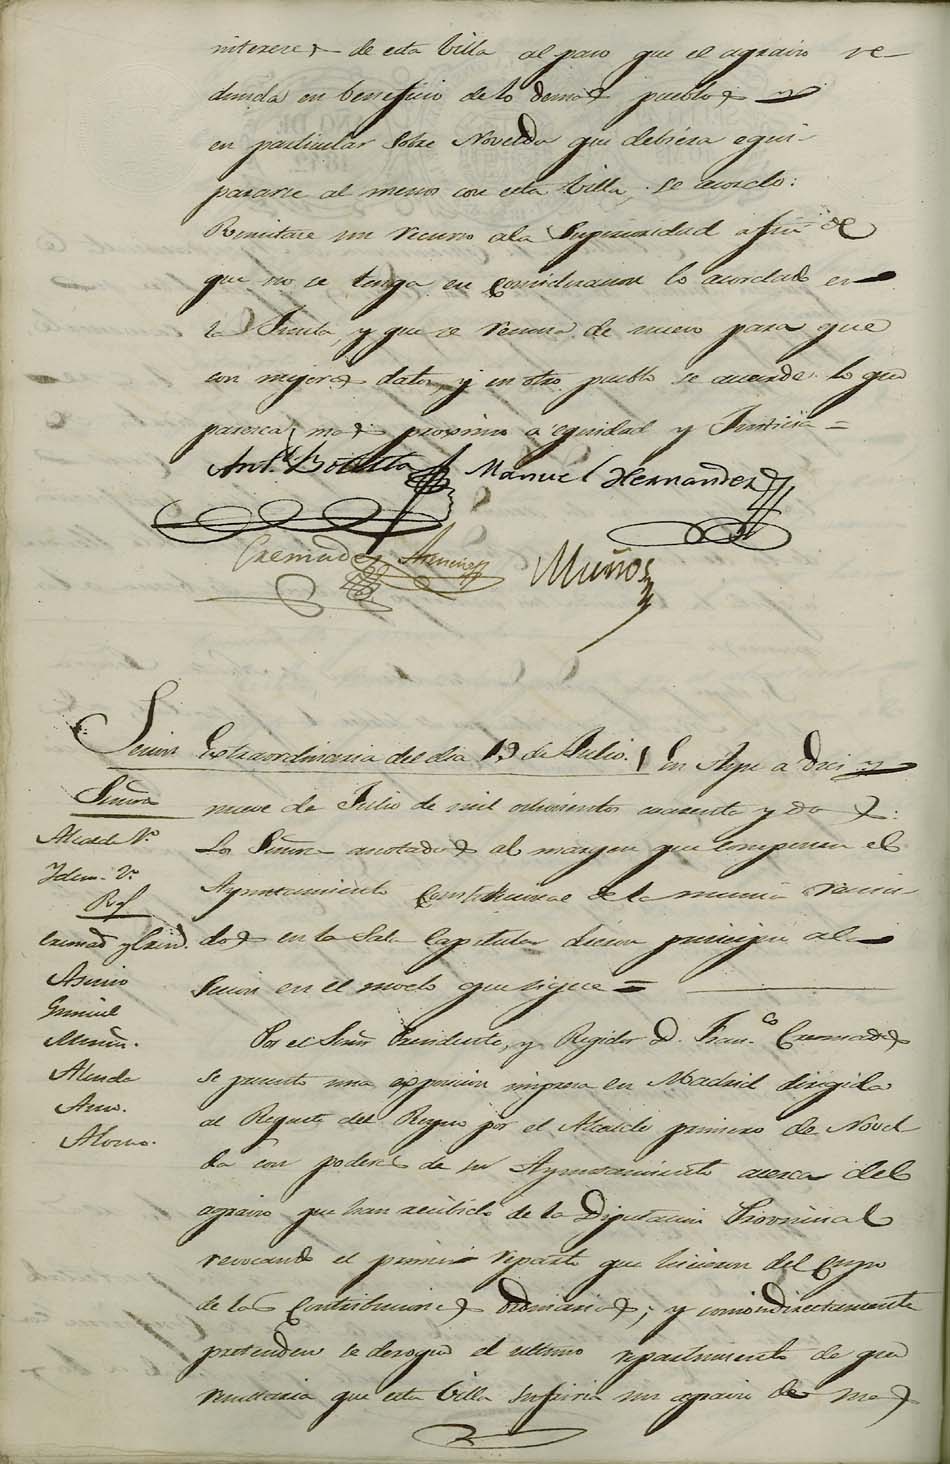 intereses de esta Villa al paso que el agravio re-
dunda en beneficio de los demas pueblos y
en particular sobre Novelda que debiera equi-
pararse al menos con esta Villa, se acordo:
Remitase un recurso a la Superioridad a fin de
que no se tenga en consideracion lo acordado en
la Junta, y que se reuna de nuevo para que
con mejores datos, y en otro pueblo se acuerde lo que
paresca mas proximo a equidad y Justicia =
Antº Botella Manuel Hernandez
Cremades Muños
Sesion Extraordinaria del dia 19 de Julio. En Aspe a diez y
Señores
nueve de Julio de mil ochocientos cuarenta y dos:
Alcalde 1º
Los Señores anotados al margen que componen el
Idem 2º
Ayuntamiento Constitucional de la misma reuni-
Rs
dos en la Sala Capitular dieron principio a la
Cremads y
Sesion en el modo que sigue =
Asencio
Muñoz.
Por el Señor Presidente, y Regidor D. Franco Cremades
Alenda
se presento una exposicion impresa en Madrid dirigida
al Regente del Reyno por el Alcalde primero de Novel
Alonso.
da con poderes de su Ayuntamiento acerca del
agravio que han recibido de la Diputacion Provincial
revocando el primer reparto que hicieron del cupo
de las Contribuciones ordinarias; y como indirectamente
pretenden se derogue el ultimo repartimiento de que
resultaria que esta Villa sufriria un agravio de mas